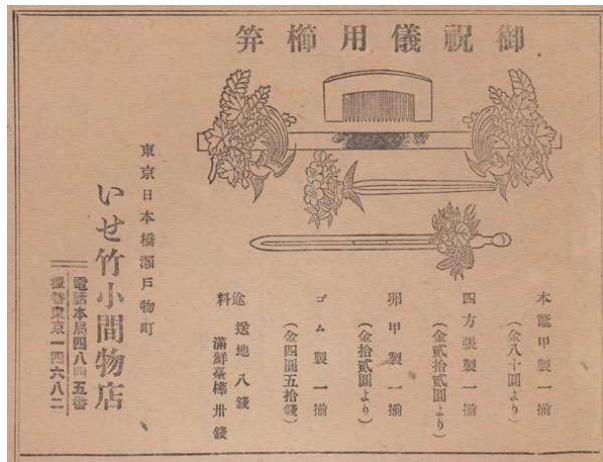 御祝儀用櫛笄
本鼈甲製一揃
(金八十圓より)
四方張製一揃
(金貳拾貳圓より)
卵甲製一揃
(金拾貳圓より)
ゴム製一揃
(金四圓五拾錢)
送料
内地八錢
滿鮮臺樺卅錢
東京日本橋瀬戸物町
いせ竹小間物店
電話本局四八四五番
振替東京一四六八二